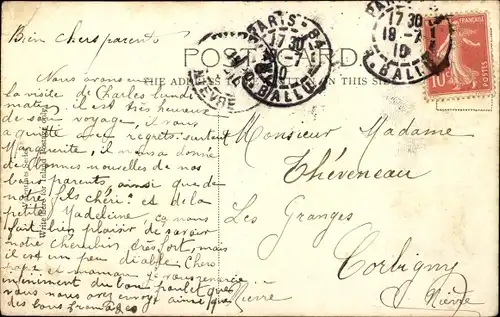 Bien chers parents
POST CARD.
THE ADDRESS ON THIS
PARIS - 84
17 30
18-7
10
R. BALLU
NIEVRE
PARIS
17 30
18-7
10
R. BALLU
10
Nous avons eu
la visite de Charles lundi
matin, il est très heureux
de son voyage, il nous
a quitté avec regrets surtout
Marguerite, il nous a donné
de bonnes nouvelles de nos
bons parents, ainsi que de
notre fils chéri et de la
petite Madeleine ça nous
fait bien plaisir de savoir
notre cherubin très fort, mais
il est un peu diable Chers
papa et maman je vous remercie
infiniment du bon poulet que
vous nous avez envoyé ainsi que
des bons fromages
Monsieur Madame
Théveneau
Les Granges
Corbigny
Nièvre
Nièvre